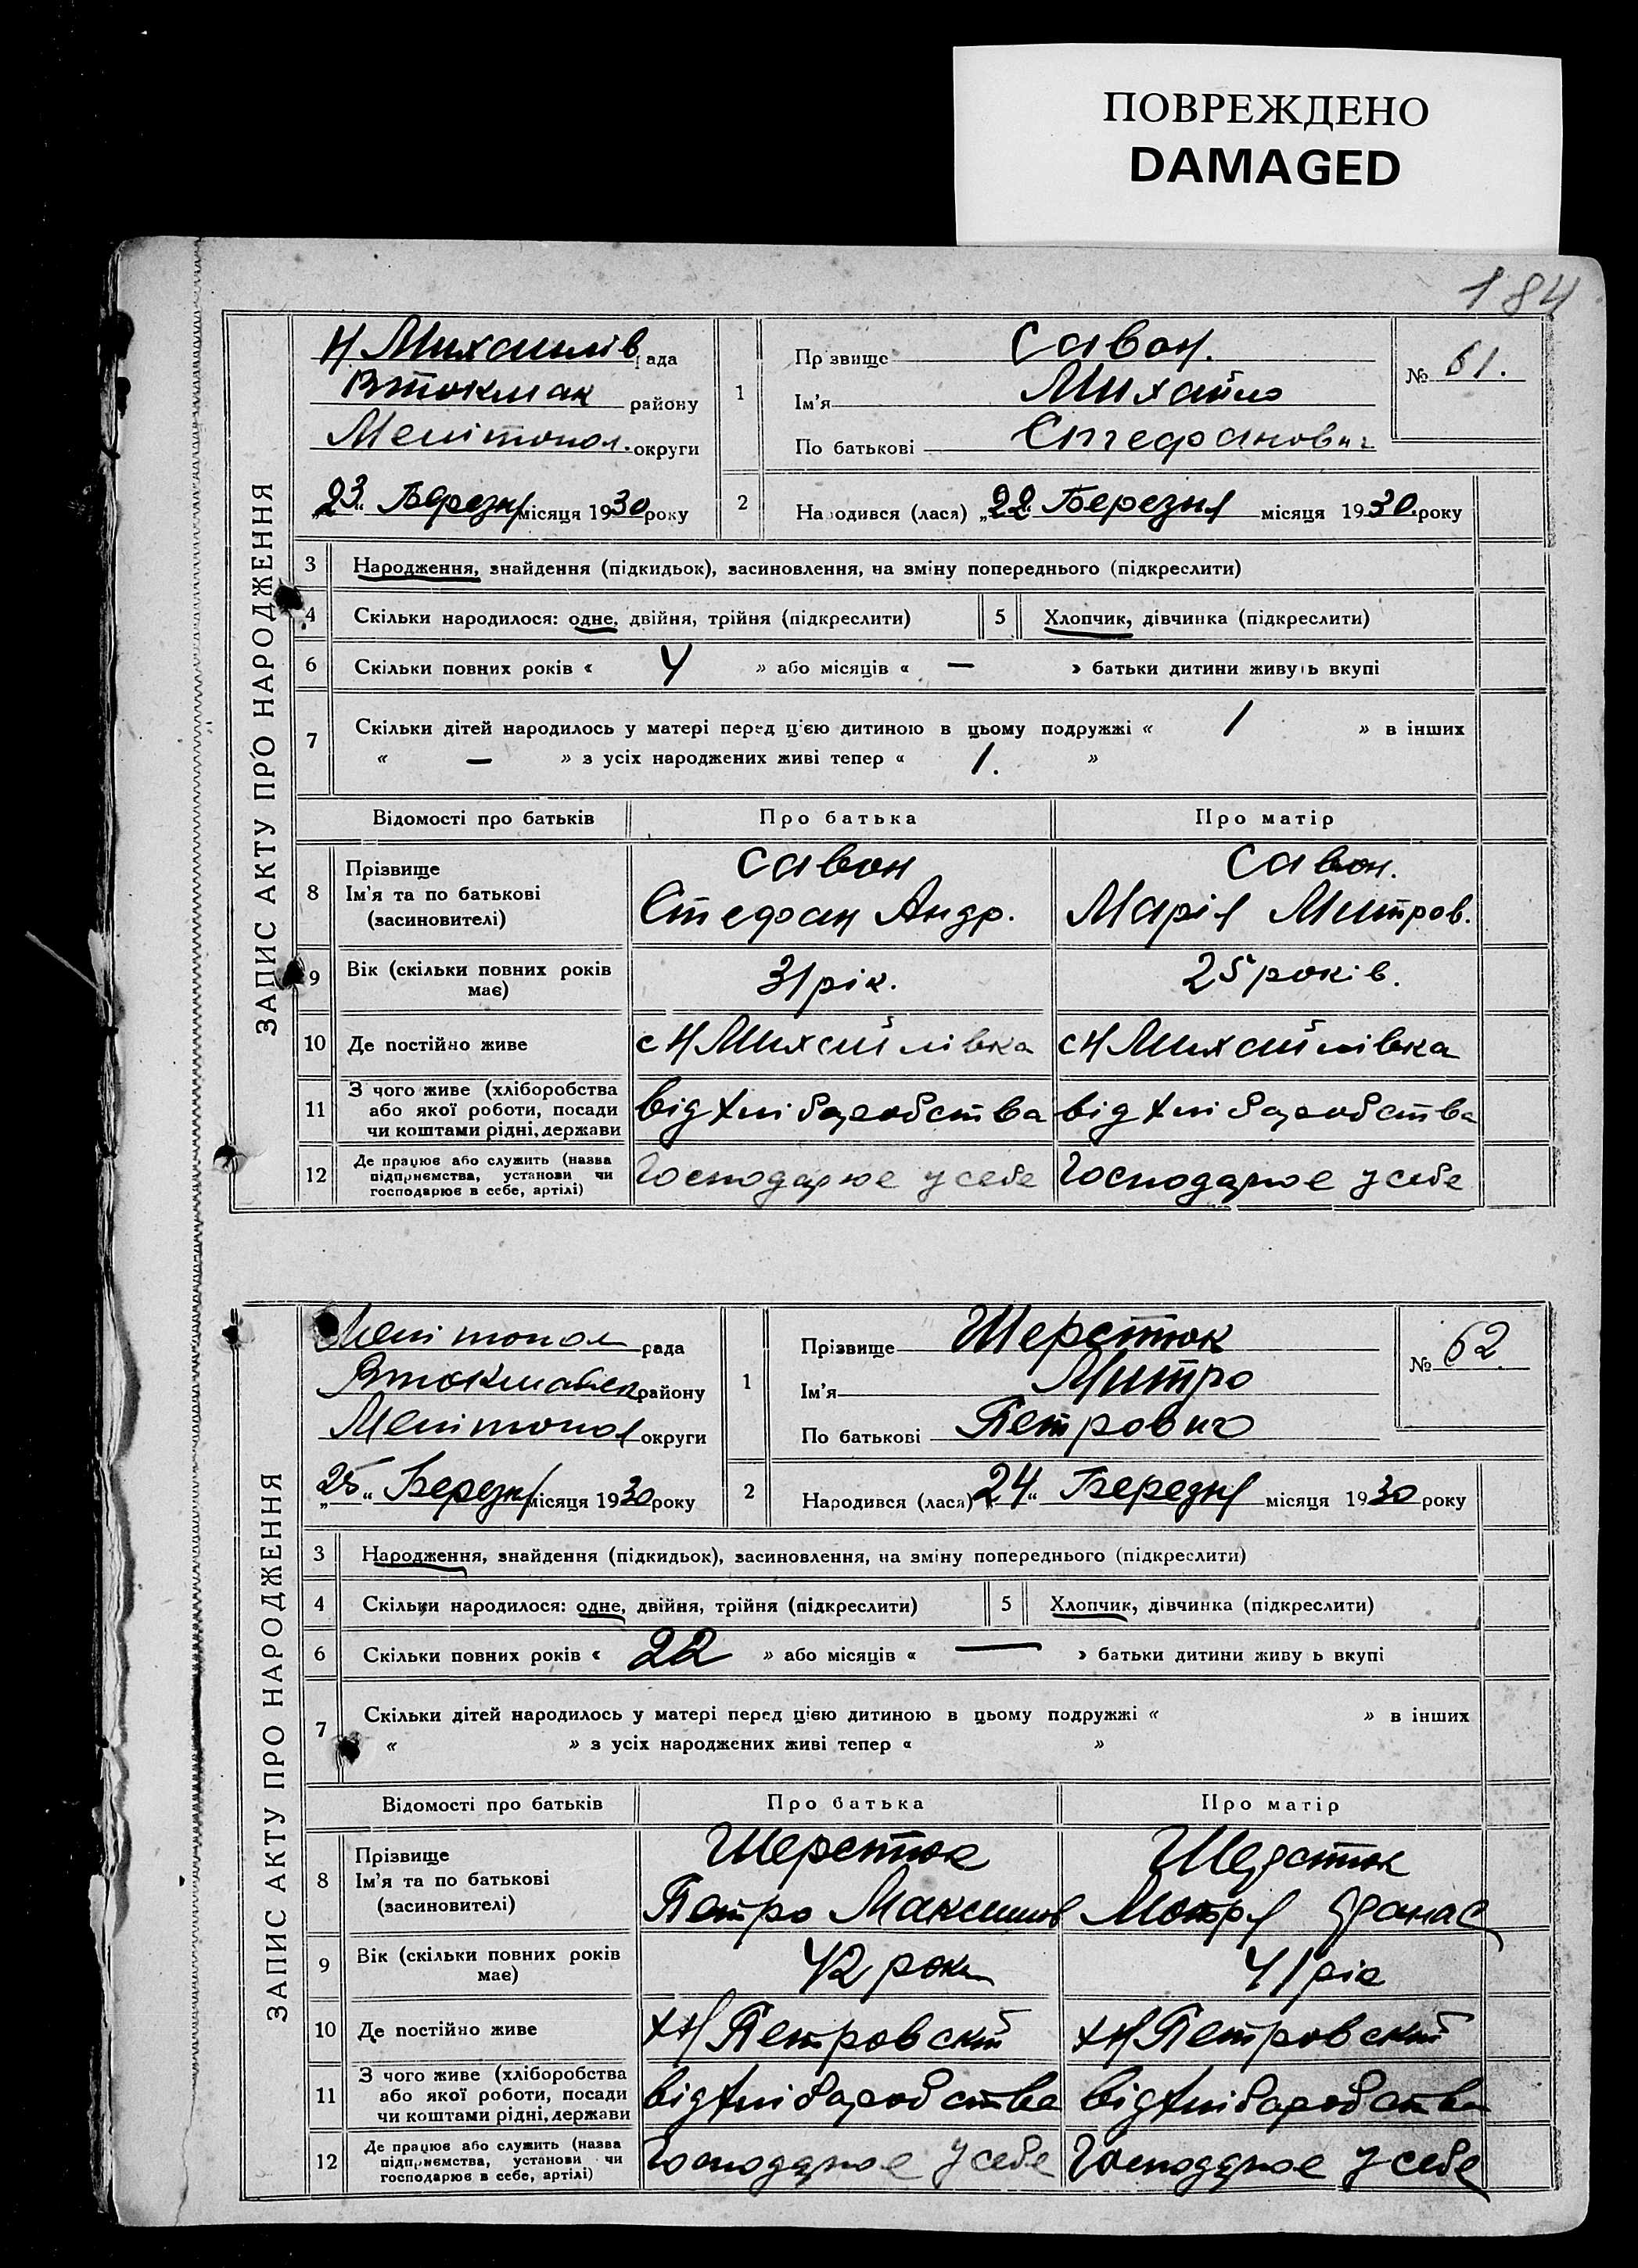 ПОВРЕЖДЕНО
DAMAGED
184
ЗАПИС АКТУ ПРО НАРОДЖЕННЯ
Н Михайлів рада
Втокмак району
Мелітопол. округи
„23“ Березня місяця 1930 року
1
Прізвище Савон.
Ім'я Михайло
По батькові Стефанович
№ 61.
2
Народився (лася) „22“ Березня місяця 1930 року
3 Народження, знайдення (підкидьок), засиновлення, на зміну попереднього (підкреслити)
4 Скільки народилося: одне, двійня, трійня (підкреслити) 5 Хлопчик, дівчинка (підкреслити)
6 Скільки повних років « 4 » або місяців « — » батьки дитини живуть вкупі
7 Скільки дітей народилось у матері перед цією дитиною в цьому подружжі « 1 » в інших
« — » з усіх народжених живі тепер « 1. »
Відомості про батьків Про батька Про матір
8 Прізвище
Ім'я та по батькові
(засиновителі)
Савон
Стефан Андр.
Савон.
Марія Митров.
9 Вік (скільки повних років
має)
31 рік.
25 років.
10 Де постійно живе с Н Михайлівка с Н Михайлівка
11 З чого живе (хліборобства
або якої роботи, посади
чи коштами рідні, держави
від хліборобства від хліборобства
12 Де працює або служить (назва
підприємства, установи чи
господарює в себе, артілі)
Господарює у себе Господарює у себе
ЗАПИС АКТУ ПРО НАРОДЖЕННЯ
Мелітопол рада
району
Мелітопол округи
„25“ Березня місяця 1930 року
1
Прізвище Шерстюк
Ім'я Митро
По батькові Петрович
№ 62.
2
Народився (лася) „24“ Березня місяця 1930 року
3 Народження, знайдення (підкидьок), засиновлення, на зміну попереднього (підкреслити)
4 Скільки народилося: одне, двійня, трійня (підкреслити) 5 Хлопчик, дівчинка (підкреслити)
6 Скільки повних років « 22 » або місяців « — » батьки дитини живуть вкупі
7 Скільки дітей народилось у матері перед цією дитиною в цьому подружжі « » в інших
« » з усіх народжених живі тепер « »
Відомості про батьків Про батька Про матір
8 Прізвище
Ім'я та по батькові
(засиновителі)
Шерстюк
Петро Максимов
Шерстюк
Мотря Панас
9 Вік (скільки повних років
має)
42 роки
41 рік
10 Де постійно живе х Н Петровский х Н Петровский
11 З чого живе (хліборобства
або якої роботи, посади
чи коштами рідні, держави
від хліборобства від хліборобства
12 Де працює або служить (назва
підприємства, установи чи
господарює в себе, артілі)
Господарює у себе Господарює у себе